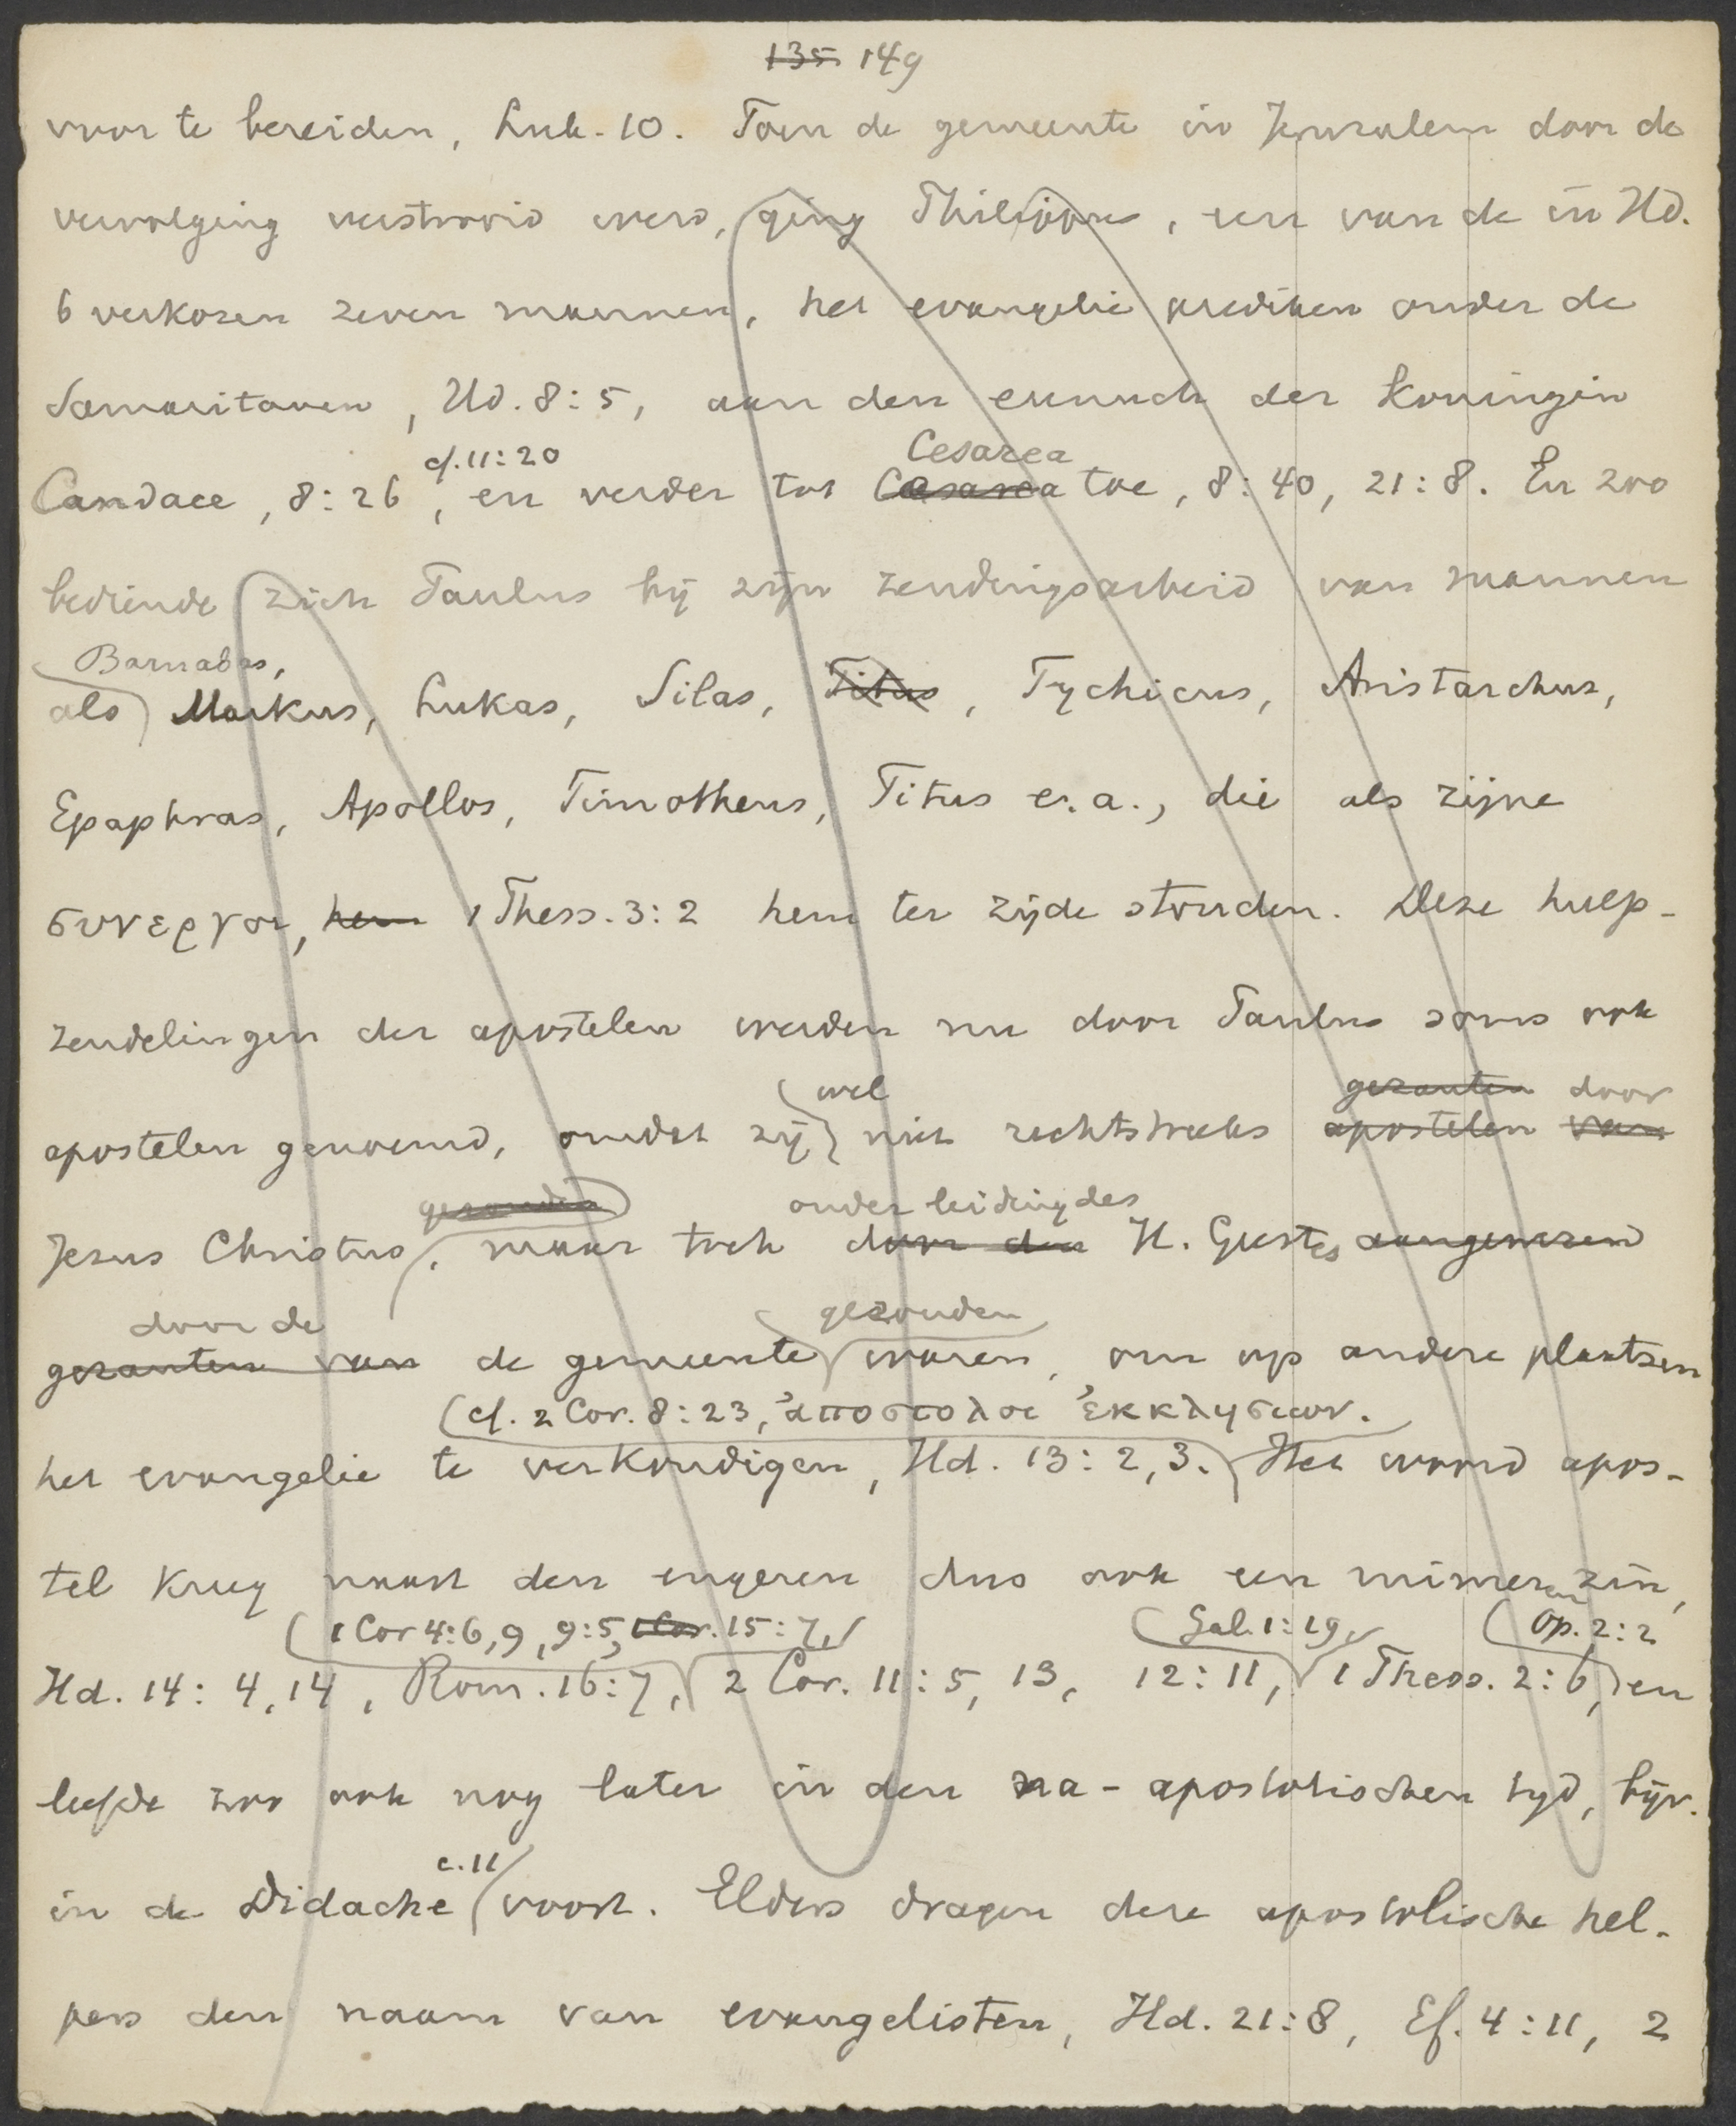 135 149
voor te bereiden, Luk. 10. Toen de gemeente in Jeruzalem door de
vervolging verstrooid werd, ging Philippus, een van de in Hd.
6 verkozen zeven mannen, het evangelie prediken onder de
Samaritanen, Hd. 8:5, aan den eunuch der Koningin
cf. 11:20 Cesarea
Candace, 8:26, en verder tot Cesarea toe, 8:40, 21:8. En zoo
bediende zich Paulus bij zijn zendingsarbeid van mannen
Barnabas,
als Markus, Lukas, Silas, Titus, Tychicus, Aristarchus,
Epaphras, Apollos, Timotheus, Titus e.a., die als zijne
συνεργοι, hem 1 Thess. 3:2 hem ter zijde stonden. Deze hulp-
zendelingen der apostelen werden nu door Paulus soms ook
wel gezanten door
apostelen genoemd, omdat zij niet rechtstreeks apostelen van
gezonden onder leiding des
Jezus Christus, maar toch door den H. Geestes aangewezen
door de gezonden
gezanten van de gemeente waren, om op andere plaatsen
cf. 2 Cor. 8:23, ἀποστολοι ἐκκλησιων.
het evangelie te verkondigen, Hd. 13:2,3. Het woord apos-
tel kreeg naast den engeren dus ook een ruimeren zin,
1 Cor 4:6,9, 9:5, 1 Cor. 15:7, Gal. 1:19, Op. 2:2
Hd. 14:4,14, Rom. 16:7, 2 Cor. 11:5, 13, 12:11, 1 Thess. 2:6, en
leefde zoo ook nog later in den na-apostolischen tijd, bijv.
c. 11
in de Didache voort. Elders dragen deze apostolische hel-
pers den naam van evangelisten, Hd. 21:8, Ef. 4:11, 2